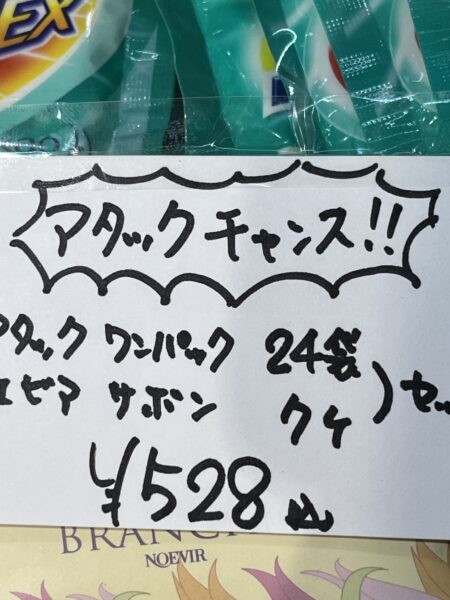 EX
アタックチャンス!!
アタック ワンパック 24袋
ピア サボン 7ケ
) セッ
¥528込
BRANC
NOEVIR